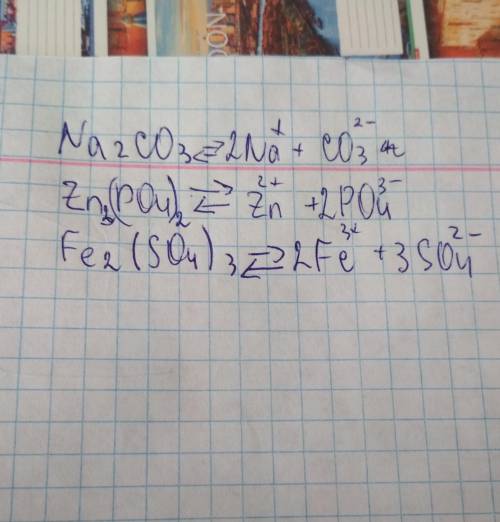 NÔN
Na₂CO₃ ⇄ 2Na⁺ + CO₃²⁻
Zn₃(PO₄)₂ ⇄ Zn²⁺ + 2PO₄³⁻
Fe₂(SO₄)₃ ⇄ 2Fe³⁺ + 3SO₄²⁻